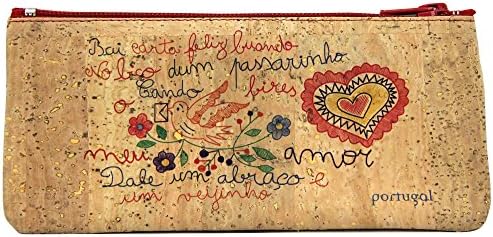 Bai carta feliz buando
no bico dum passarinho
Cando bires
o
meu amor
Dale um abraço e
um veijinho
portugal